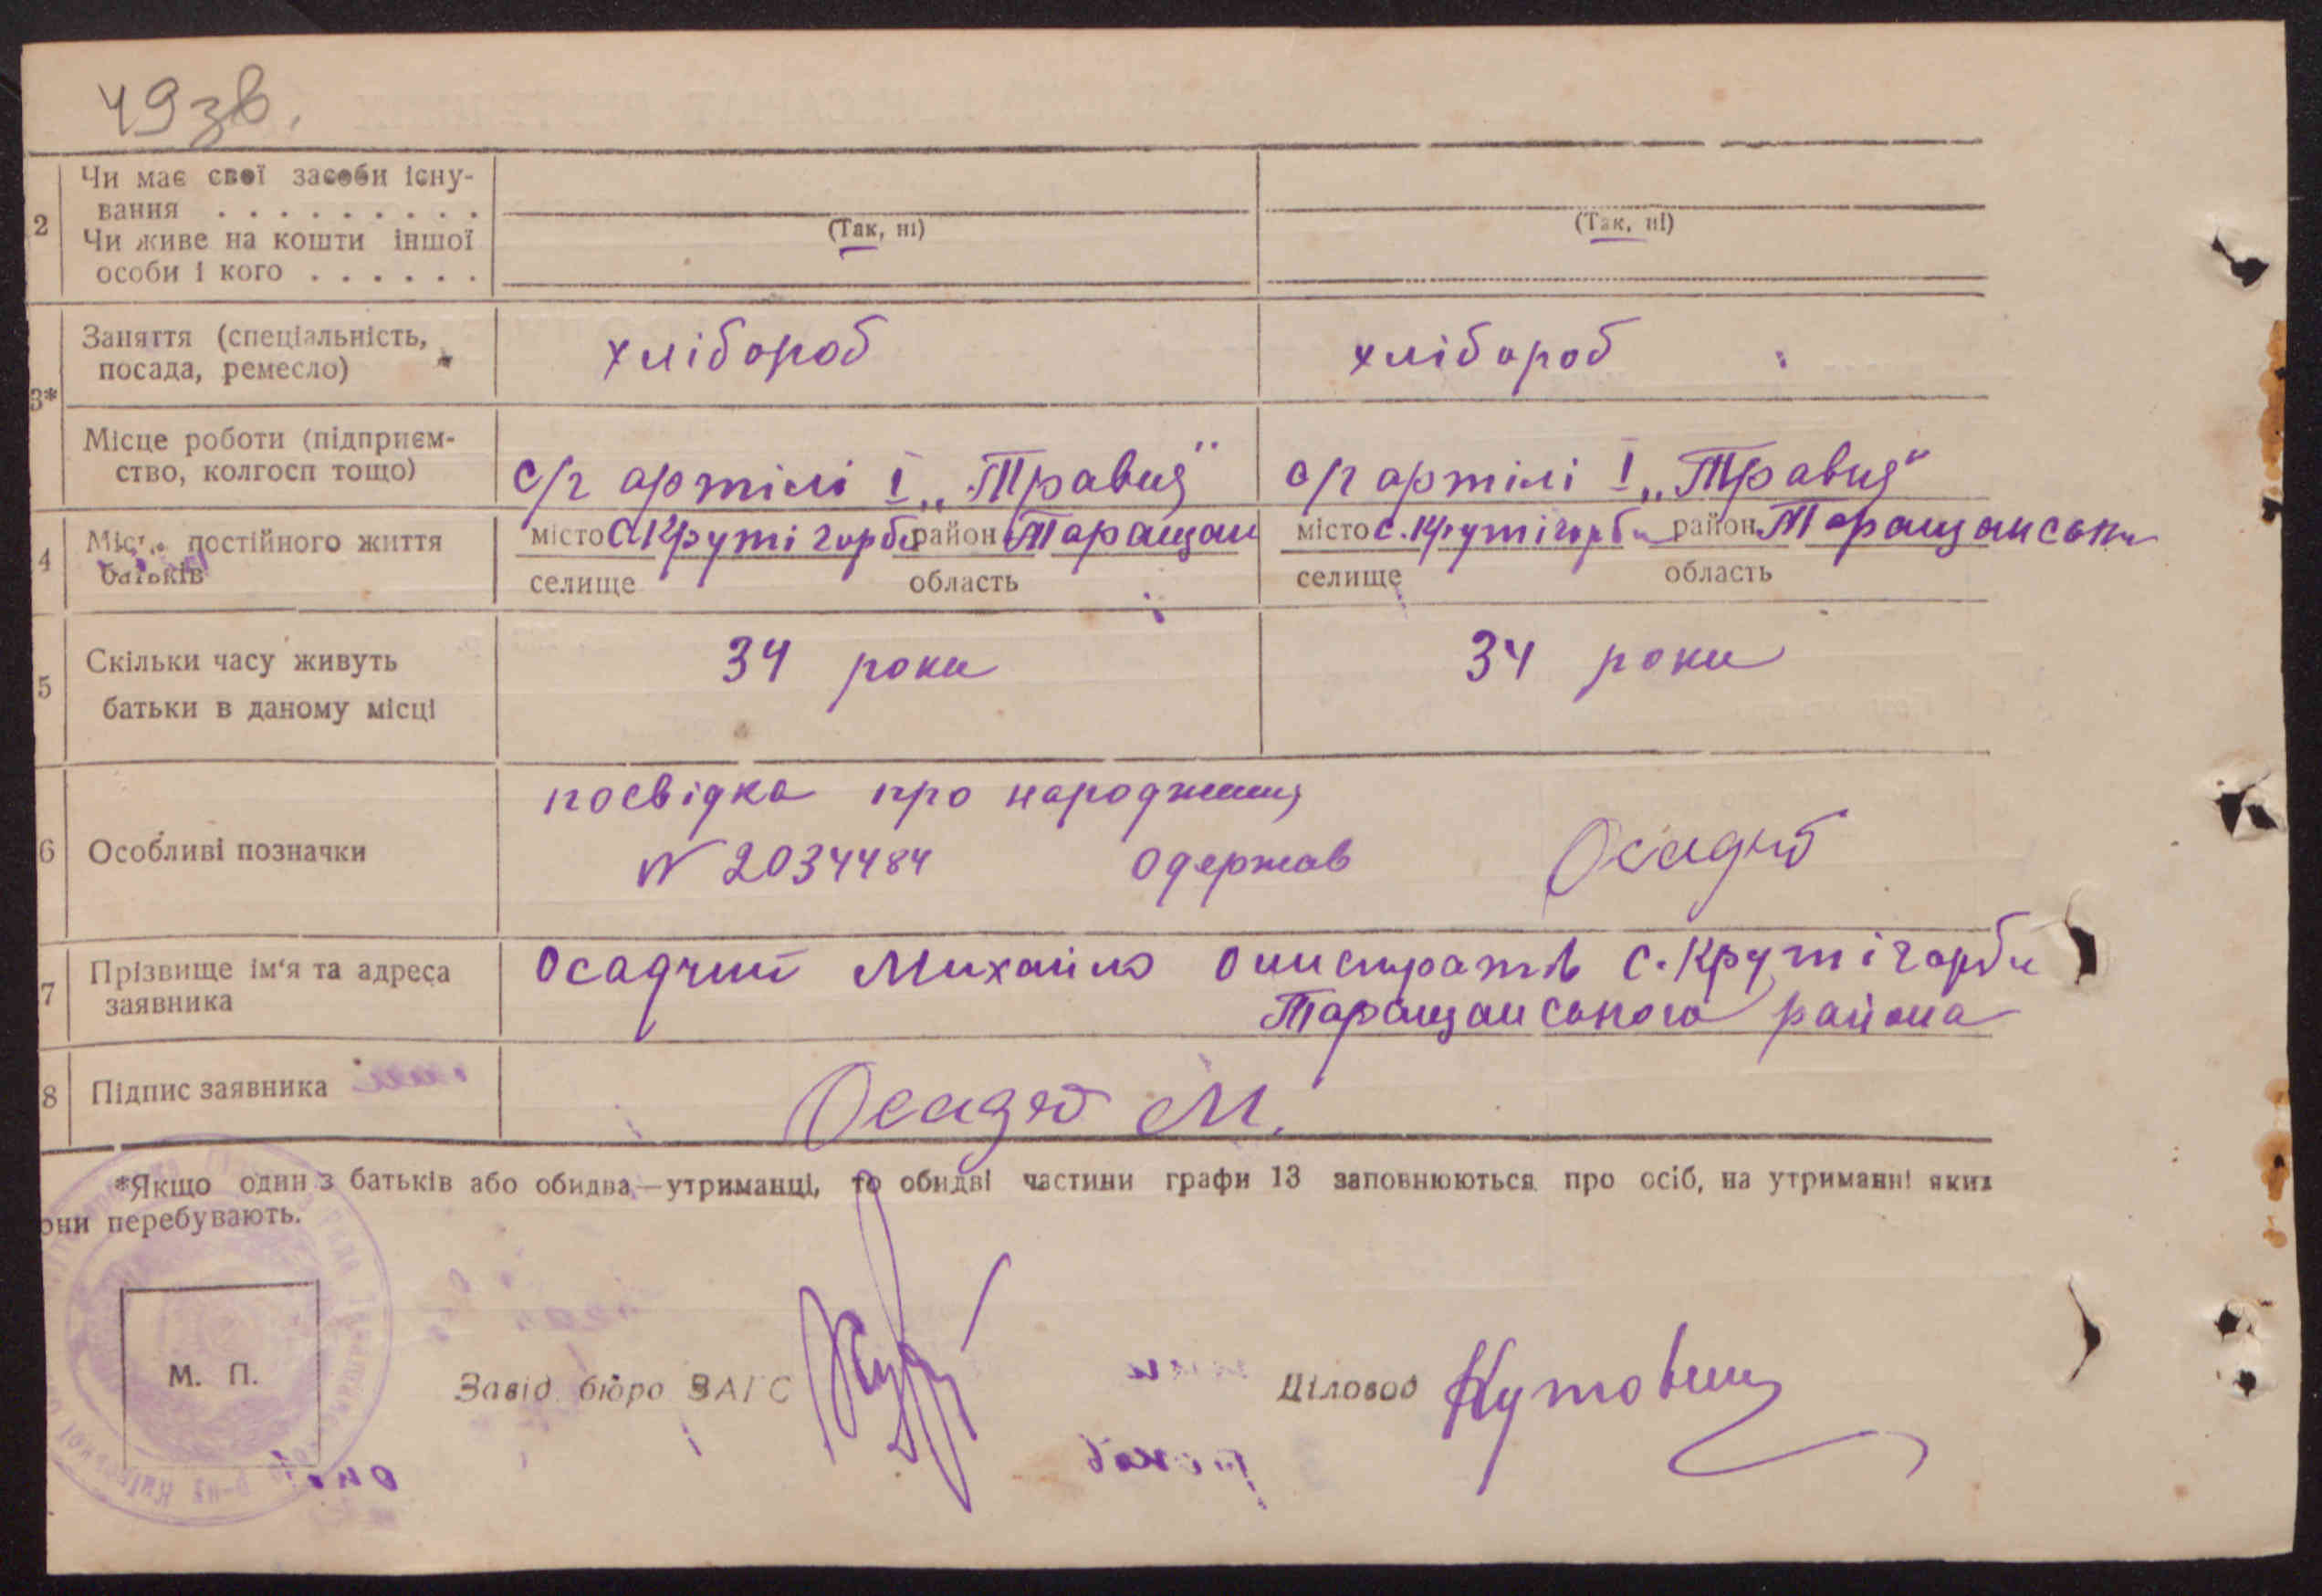 49 зв.
2 Чи має свої засоби існу-
вання . . . . . . . . . (Так, ні) (Так, ні)
Чи живе на кошти іншої
особи і кого . . . . . .
3* Заняття (спеціальність, посада, ремесло) хлібороб хлібороб
Місце роботи (підприєм-
ство, колгосп тощо) с/г артілі І „Травня" с/г артілі І „Травня"
4 Місце постійного життя місто с. Крутігорби район Таращан місто с. Крутігорби район Таращанськи
батьків селище область селище область
5 Скільки часу живуть 34 роки 34 роки
батьки в даному місці
посвідка про народження
6 Особливі позначки № 2034484 Одержав
7 Прізвище ім'я та адреса Осадчий Михайло с. Крутігорби
заявника Таращанського района
8 Підпис заявника М.
*Якщо один з батьків або обидва—утриманці, то обидві частини графи 13 заповнюються про осіб, на утриманні яких
они перебувають.
М. П.
Завід. бюро ЗАГС Діловод